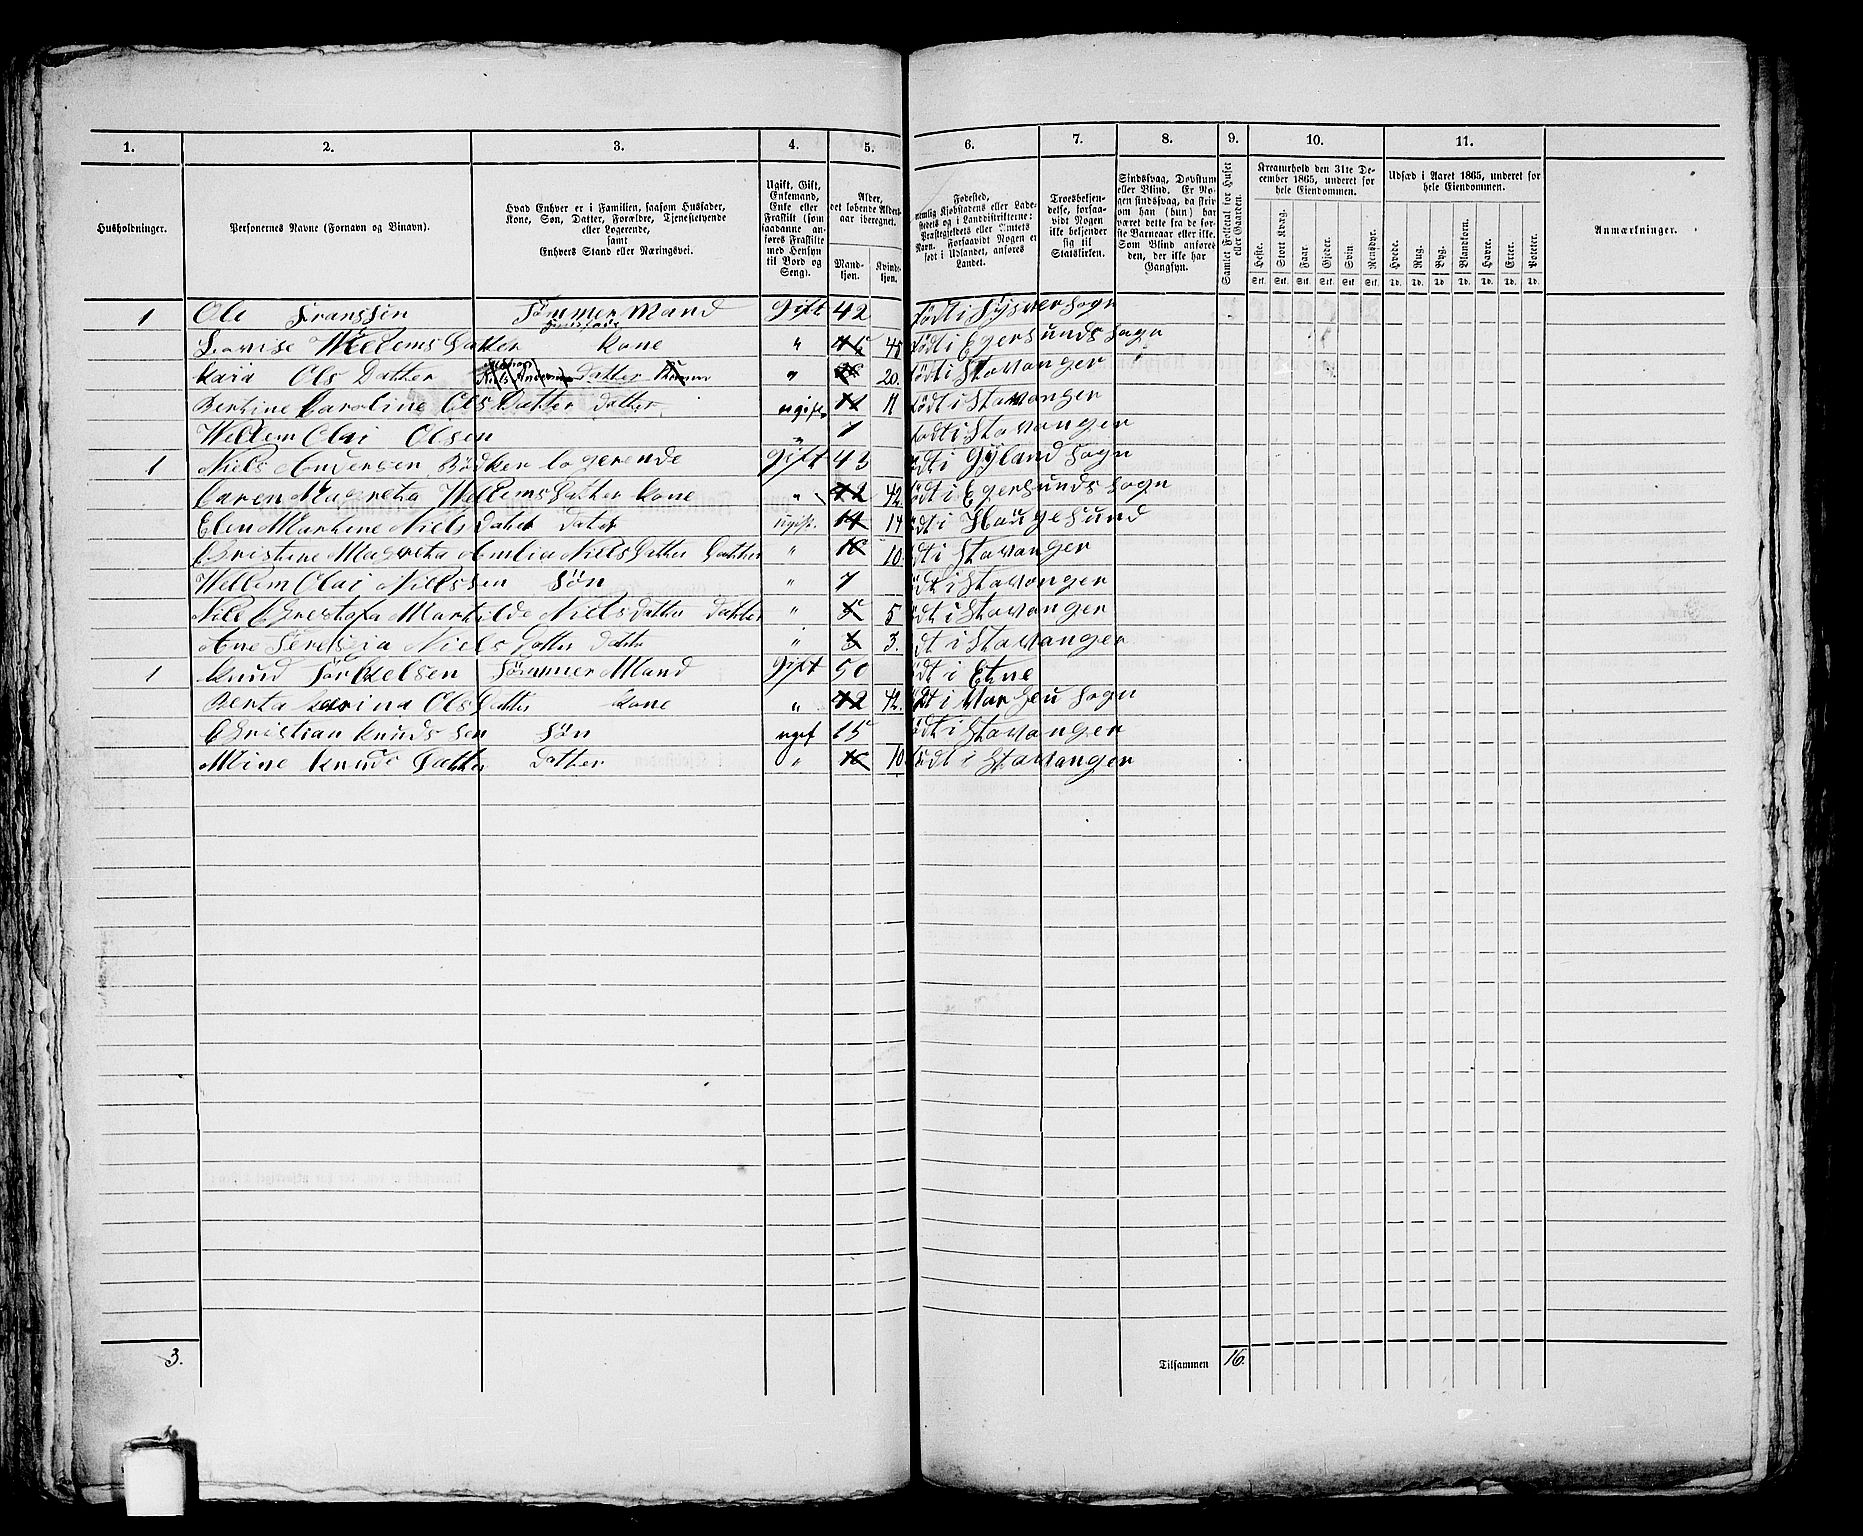 1. 2. 3. 4. 5. 6. 7. 8. 9. 10. 11.
Husholdninger.
Personernes Navne (Fornavn og Binavn).
Hvad Enhver er i Familien, saasom Husfader,
Kone, Søn, Datter, Forældre, Tjenestetyende
eller Logerende,
samt
Enhvers Stand eller Næringsvei.
Ugift, Gift,
Enkemand,
Enke eller
Fraskilt (som
saadanne an-
føres Fraskilte
med Hensyn
til Bord og
Seng).
Alder,
det løbende Alders-
aar iberegnet.
Mand-
kjøn.
Kvind-
kjøn.
Fødested,
nemlig Kjøbstadens eller Lade-
stedets og i Landdistrikterne:
Præstegjeldets eller Amtets
Navn. Forsaavidt Nogen er
født i Udlandet, anføres
Landet.
Troesbekjen-
delse, forsaa-
vidt Nogen
ikke bekjender
sig til
Statskirken.
Sindssvag, Døvstum
eller Blind. Er No-
gen sindssvag, da skriv
om han (hun) har
været dette fra de før-
ste Barneaar eller ikke.
Som Blind anføres
den, der ikke har
Gangsyn.
Samlet Folketal for Huset
eller Gaarden.
Kreaturhold den 31te De-
cember 1865, underet for
hele Eiendommen.
Heste. Stort Kvæg. Faar. Gjeder. Svin. Rensdyr.
Stk. Stk. Stk. Stk. Stk. Stk.
Udsæd i Aaret 1865, underet for
hele Eiendommen.
Hvede. Rug. Byg. Blandkorn. Havre. Erter. Poteter.
Td. Td. Td. Td. Td. Td. Td.
Anmærkninger.
1 Ole Franssen Tømmer Mand Gift 42 født i Sysver Sogn
Husfader
Lovise Willems Datter kone " 45 født i Egersunds Sogn
Kaia Ols Datter Datter " 20. født i Stavanger
Bertine Caroline Ols Datter datter ugift 11 11 født i Stavanger
Willem Olai Olsen " 7 født i Stavanger
1 Niels Andersen Bødker logerende Gift 43 født i Gyland Sogn
Caren Magreta Willems Datter kone " 42 42. født i Egersunds Sogn
Elen Martine Niels datter datter ugift. 14 14 født i Haugesund
Christine Magreta Amilia Niels Datter Datter " 10 10. født i Stavanger
Willem Olai Nielssen Søn " 7 født i Stavanger
Marhilde Niels datter datter " 5 5 født i Stavanger
Ane Niels Datter datter " 3 3. født i Stavanger
1 Knud Torkelsen Tømmer Mand Gift 50 født i Etne
Berta Ols Datter kone " 42 42. født i Sogn
Christian Knudssen Søn ugif 15 født i Stavanger
Mine Knuds Datter Datter " 10 10 født i Stavanger
3. Tilsammen 16.